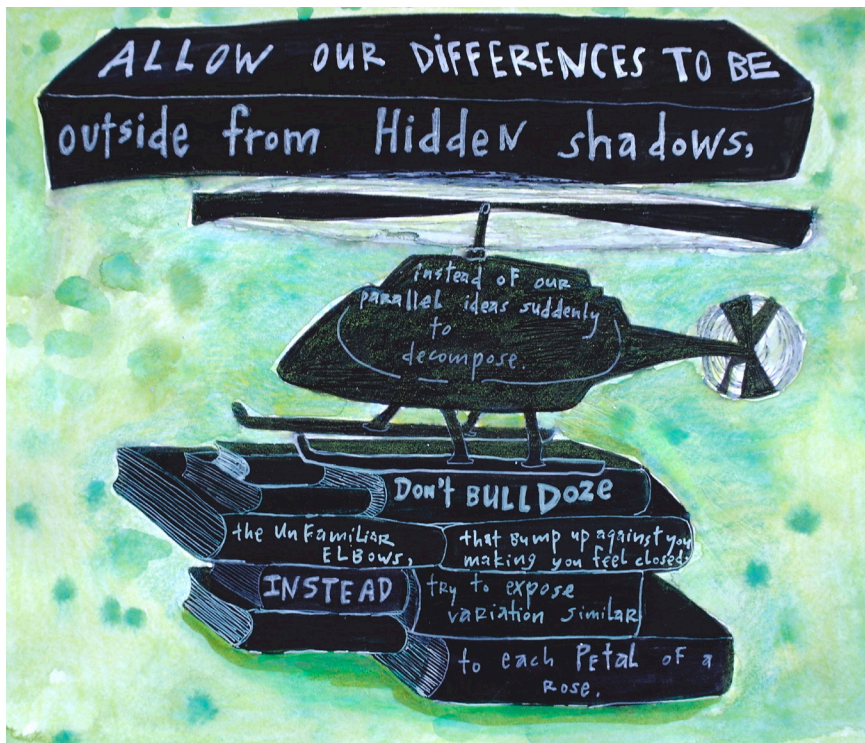 ALLOW OUR DiFFERENCES TO BE
outside from HiddeN shadows,
instead of our
parallel ideas suddenly
to
decompose.
Don't BULLDoze
the UnFamiliar
ELBOWS,
that Bump up against you
making you feel closed.
INSTEAD
try to expose
variation similar
to each Petal of a
Rose.